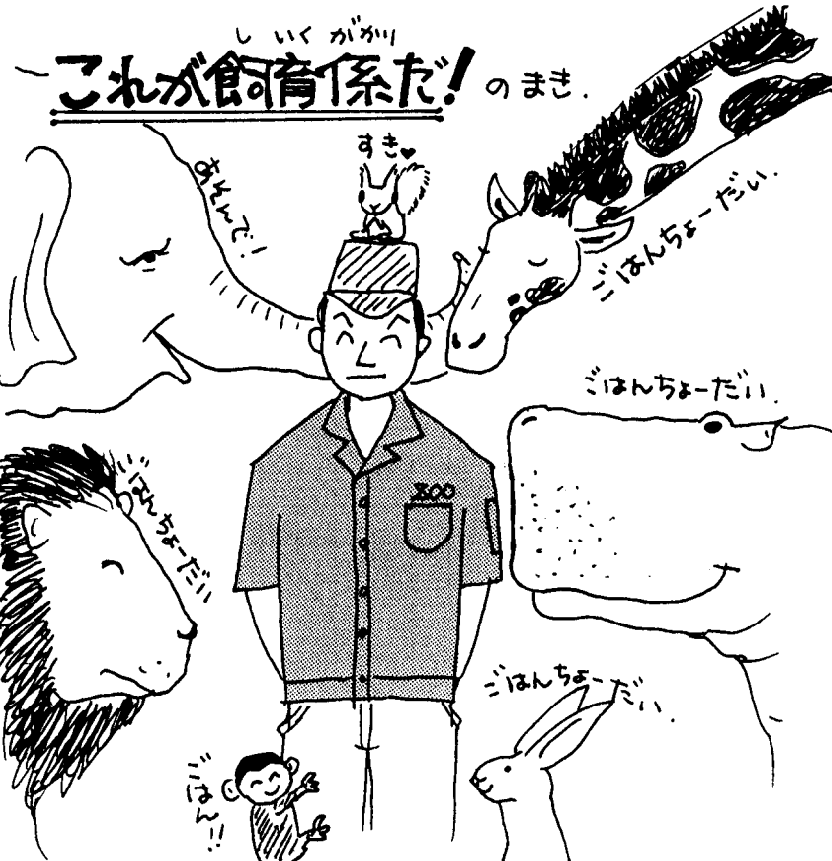 しいくがかり
これが飼育係だ!のまき.
すき♥
あそんで!
ごはんちょーだい.
ごはんちょーだい.
ごはんちょーだい
ZOO
ごはんちょーだい.
ごはん!!